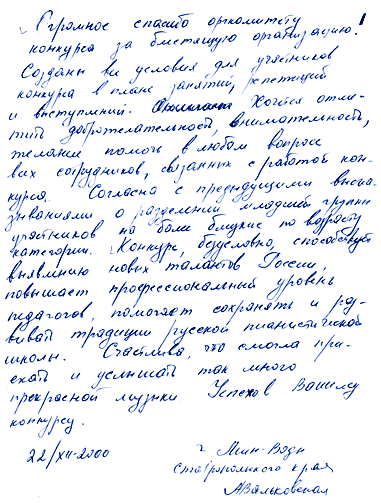 Огромное спасибо оргкомитету
конкурса за блестящую организацию!
Созданы все условия для участников
конкурса в плане занятий, репетиций
и выступлений. Хочется отме-
тить доброжелательность, внимательность,
желание помочь в любом вопросе
всех сотрудников, связанных с работой кон-
курса. Согласна с предыдущими выска-
зываниями о разделении младшей группы
участников на более близкие по возрасту
категории. Конкурс, безусловно, способствует
выявлению новых талантов России,
повышает профессиональный уровень
педагогов, помогает сохранять и раз-
вивать традиции русской пианистической
школы. Счастлива, что смогла при-
ехать и услышать так много
прекрасной музыки Успехов Вашему
конкурсу.
22/XII-2000
г Мин-Воды
Ставропольского края
АВяльковская